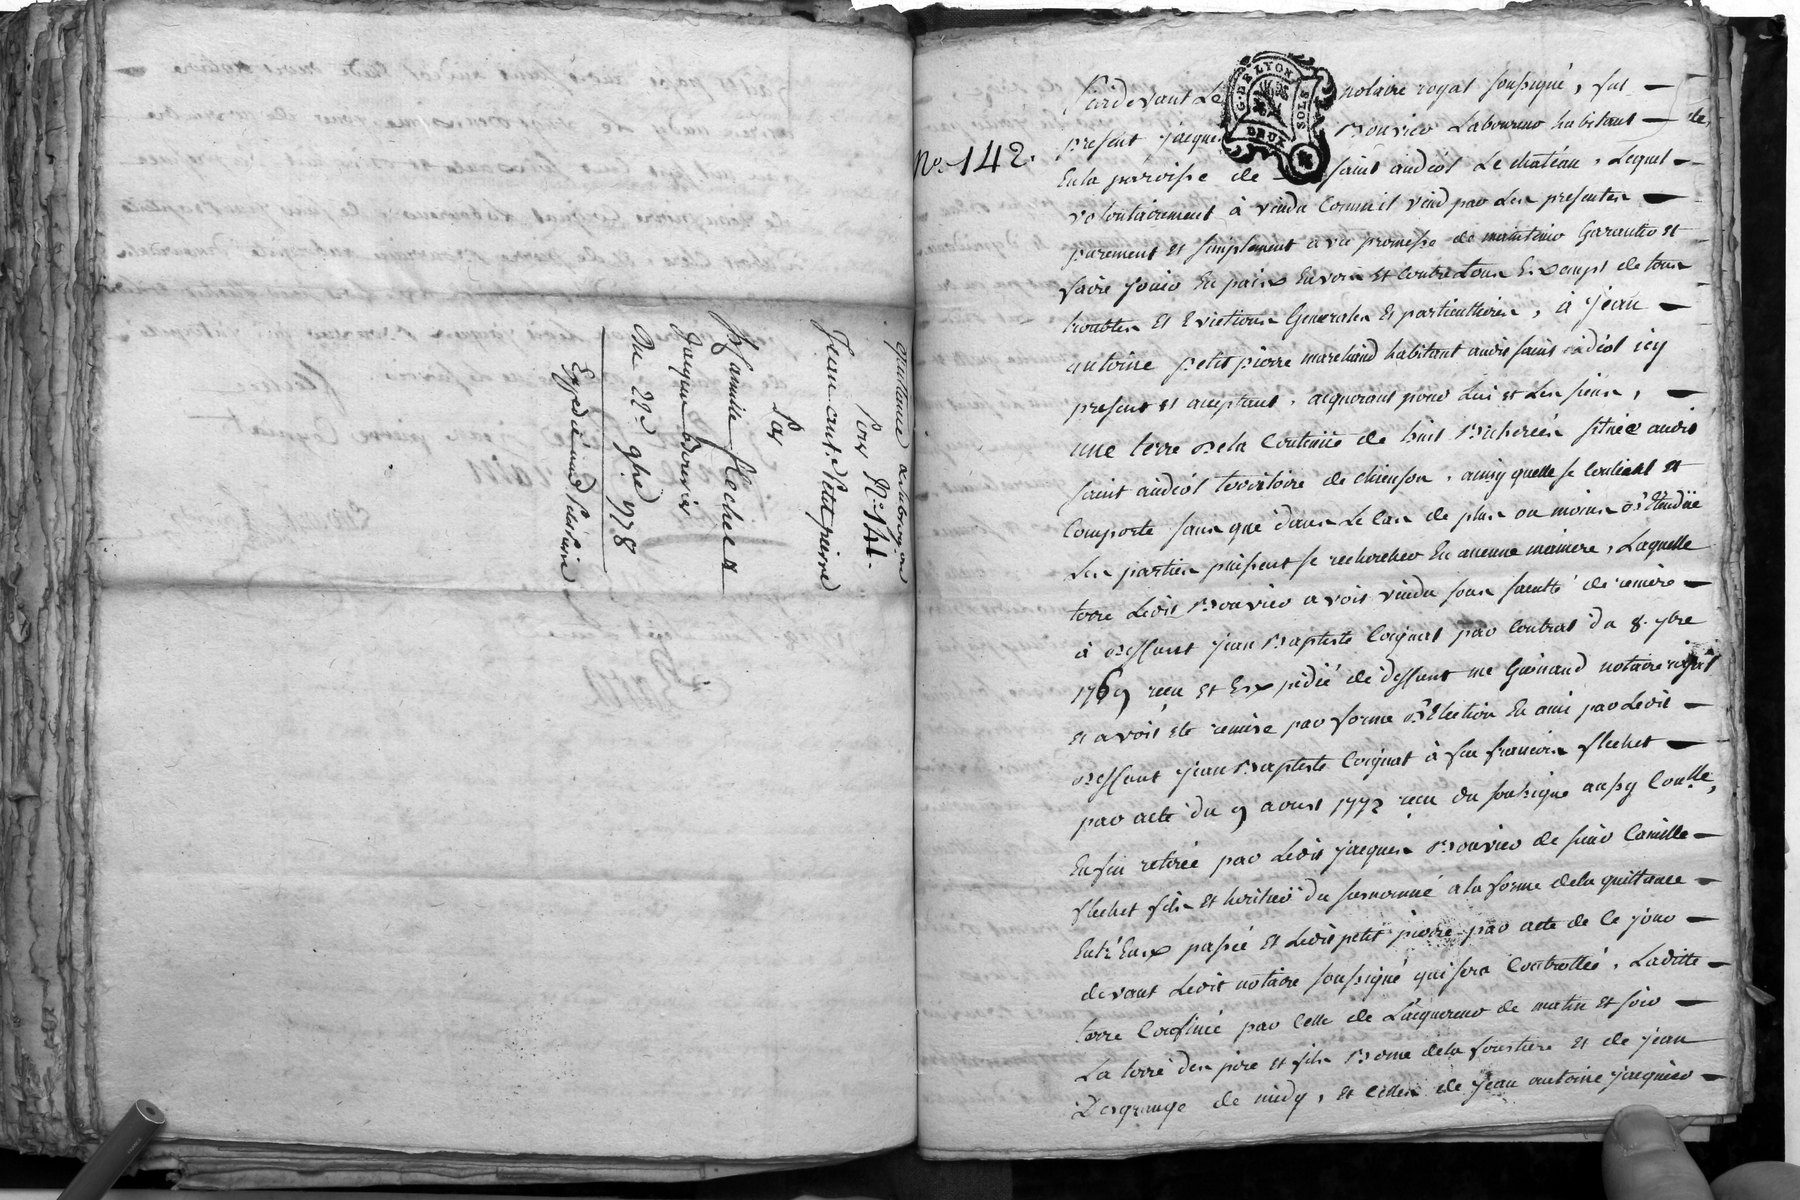 quittance de subrog.on
Pour N.o 141.
Jean ant. Petitpierre
Par
Camille flechet et
Jaque Bouvier
Du 22.e 9bre 1778
Expediée
No. 142.
G. DE LYON
DEUX SOLS
Pardevant Le notaire royal soussigné, fut
present jacques Bouvier Laboureur habitant
En la paroisse de saint andéol Le château, Lequel
volontairement à vendu Comme il vend par Les presentes
purement et simplement avec promesse de maintenir Garantir et
faire jouir En paix Envers Et Contre tous Exempt de tous
troubles Et Evictions Generales Et particullieres, à jean
antoine petit pierre marchand habitant audit saint andéol icy
present et acceptant, acquerant pour Lui et Les siens,
une terre de la Contenue de huit Bicherées située audit
saint andéol territoire de chienson, ainsy quelle se Contient et
Comporte sans que dans Le Cas de plus ou moins d'Etendüe
Les parties puissent se rechercher En aucune maniere, Laquelle
terre Ledit Bouvier avoit vendu sous faculté de remère
à deffunt jean Baptiste Coignat par Contrat du 8. 7bre
1769 recu Et Expedié de deffunt me Guinand notaire royal
Et avoit été remise par forme d'Election En ami par Ledit
deffunt jean Baptiste Coignat à feu francois flechet
par acte du 9 avril 1772 recu du soussigné aussy Con.llé,
Enfin retirée par Ledit jacques Bouvier de sieur Camille
flechet fils Et heritier du susnommé a la forme de la quittance
Entr'Eux passée Et Ledit petit pierre par acte de Ce jour
devant Ledit notaire soussigné qui sera Controllée, Laditte
terre Confinée par Celle de L'acquereur de matin Et soir
La terre des pere et fils Bome de la foustiere Et de jean
Desgrange de midy, Et Celles de jean antoine jacquier